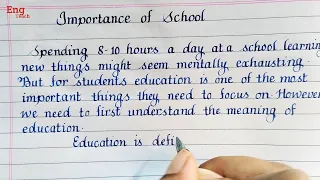 Eng
Teach
Importance of School
Spending 8-10 hours a day at a school learning
new things might seem mentally exhausting
But for students education is one of the most
important things they need to focus on. However
we need to first understand the meaning of
education.
Education is defi